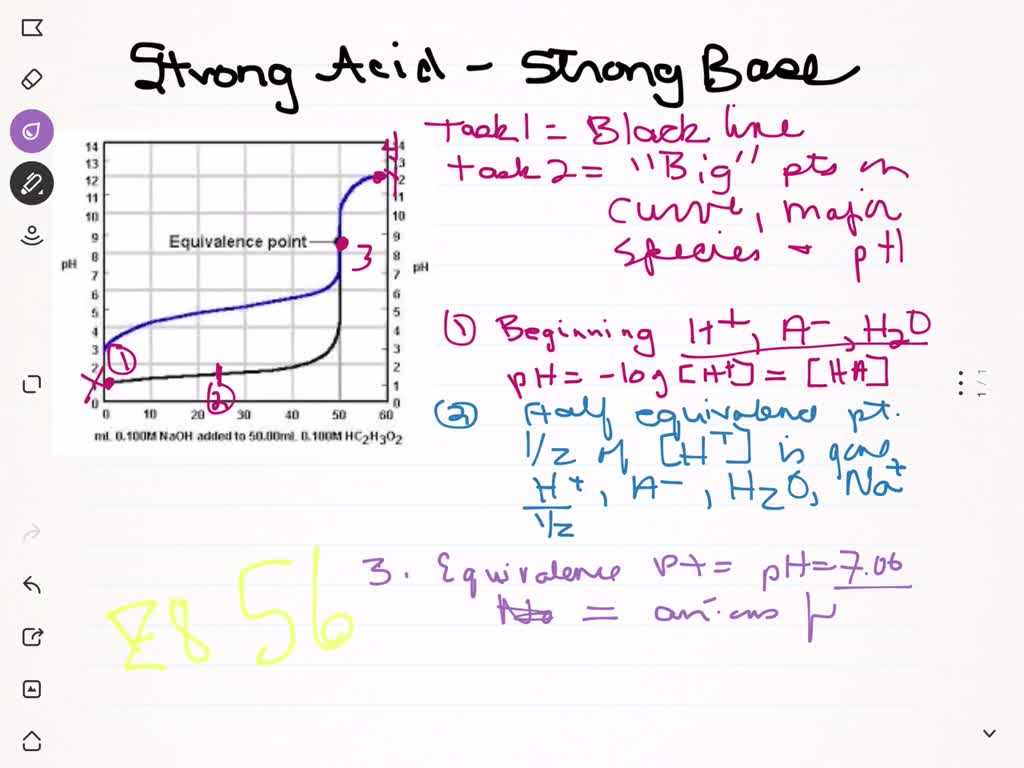 Strong Acid - Strong Base
Task 1 = Black line
Task 2 = "Big" pts on
curve, major
species + pH
14
13
12
11
10
9
8
7
6
5
4
3
2
1
0
pH
Equivalence point
3
4
14
13
12
11
10
9
8
7
6
5
4
3
2
1
0
pH
1
2
0 10 20 30 40 50 60
mL 0.100M NaOH added to 50.00mL 0.100M HC2H3O2
① Beginning H+, A-, H2O
pH = -log [H+] = [HA]
② Half equivalence pt.
1/2 of [H+] is gone
H+, A-, H2O, Na+
1/2
3. Equivalence Pt = pH = 7.00
= anions
56
1/1